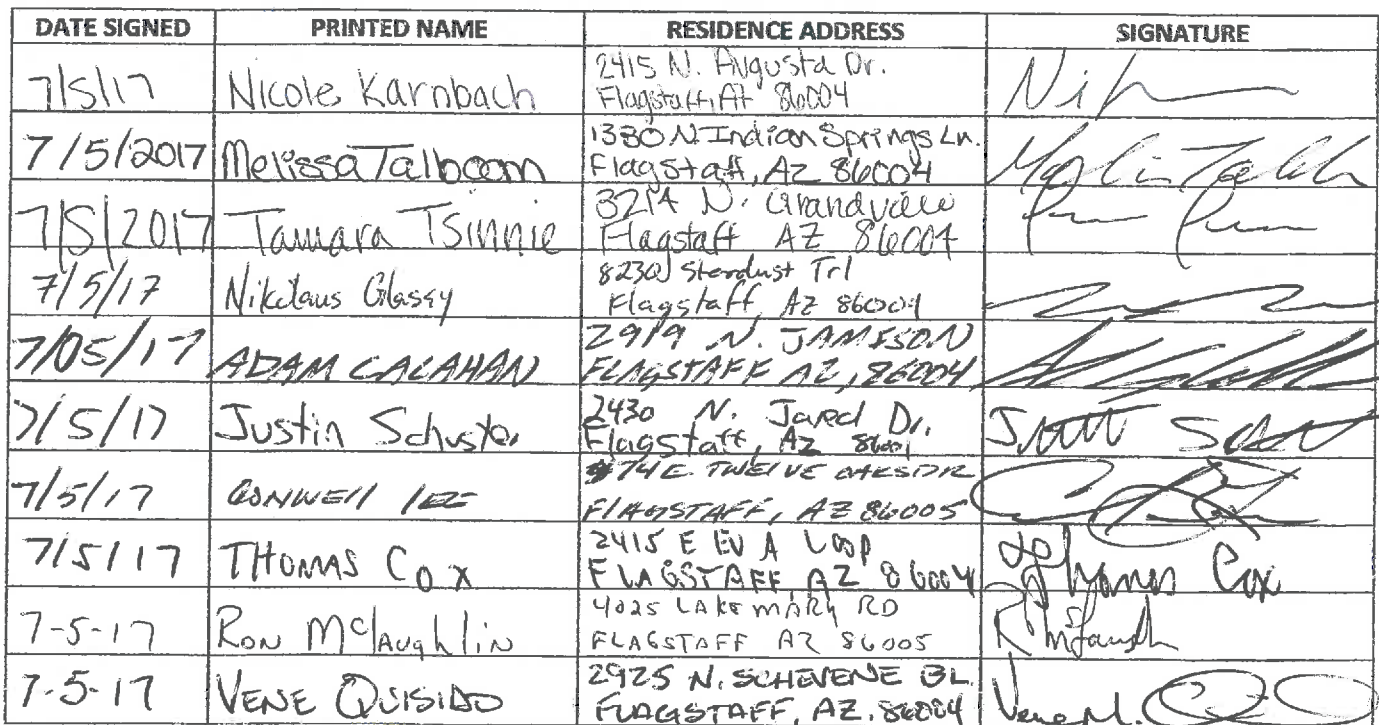 DATE SIGNED PRINTED NAME RESIDENCE ADDRESS SIGNATURE
7/5/17 Nicole Karnbach 2415 N. Augusta Dr.
Flagstaff, AZ 86004
7/5/2017 Melissa Talboom 1330 N. Indian Springs Ln.
Flagstaff, AZ 86004
7/5/2017 Tamara Tsinnie 3214 N. Grandview
Flagstaff AZ 86004
7/5/17 Nikolaus Glassy Stardust Trl
Flagstaff, AZ 86004
7/05/17 ADAM CALAHAN 2919 N. JAMISON
FLAGSTAFF AZ, 86004
7/5/17 Justin Schuster 2430 N. Jared Dr.
Flagstaff, AZ
7/5/17 CONWELL LEE 74 E TWELVE OAKS DR
FLAGSTAFF, AZ 86005
7/5/17 THOMAS COX 2415 E EVA LOOP
FLAGSTAFF, AZ 86004 Thomas Cox
7-5-17 RON McLaughlin 4025 LAKE MARY RD
FLAGSTAFF AZ 86005 R McLaughlin
7-5-17 VENE QUISIDO 2925 N. SCHEVENE BL.
FLAGSTAFF, AZ. 86004 Vene M.